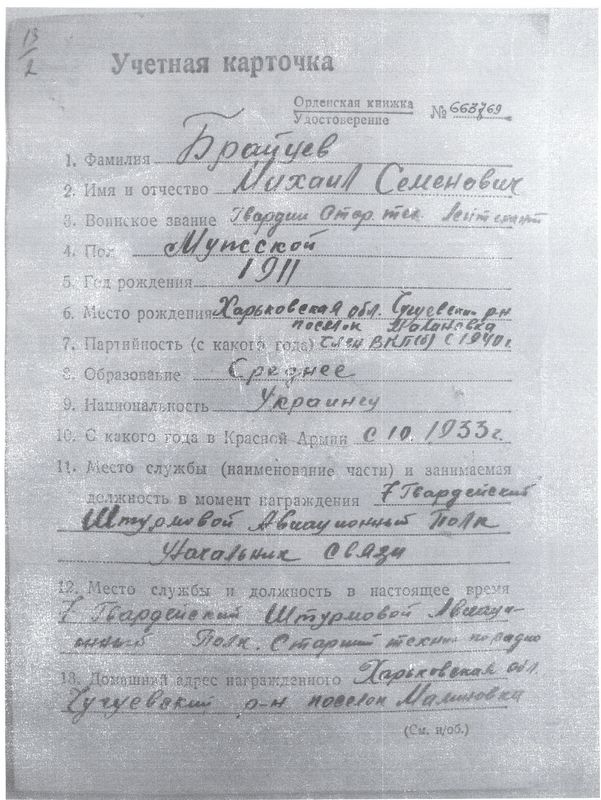 13/2
Учетная карточка
Орденская книжка
Удостоверение № 663769
1. Фамилия Брайцев
2. Имя и отчество Михаил Семенович
3. Воинское звание Гвардии Стар. тех. Лейтенант
4. Пол Мужской
5. Год рождения 1911
6. Место рождения Харьковская обл. Чугуевский р-н
поселок Малиновка
7. Партийность (с какого года) член ВКП(б) с 1940г.
8. Образование Среднее
9. Национальность Украинец
10. С какого года в Красной Армии С 10. 1933г.
11. Место службы (наименование части) и занимаемая
должность в момент награждения 7 Гвардейский
Штурмовой Авиационный Полк
Начальник Связи
12. Место службы и должность в настоящее время
7 Гвардейский Штурмовой Авиаци-
онный Полк. Старший техник по радио
13. Домашний адрес награжденного Харьковская обл.
Чугуевский р-н поселок Малиновка
(См. н/об.)